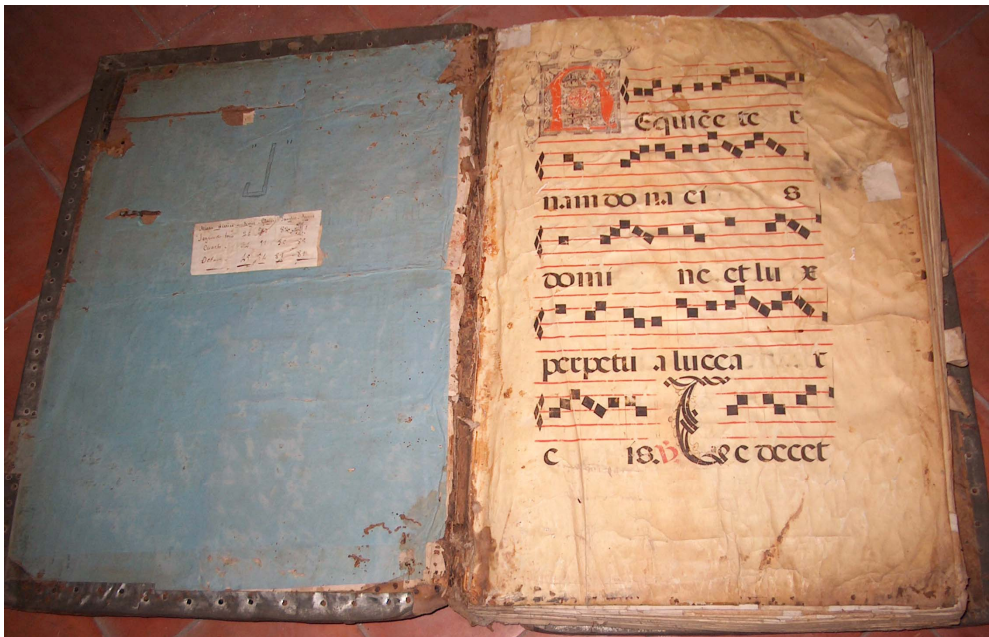 "J"
REquiẽ te r
nam do na ci s
domi ne et lu x
perpetu a lucea r
e is. ℣ Te decet